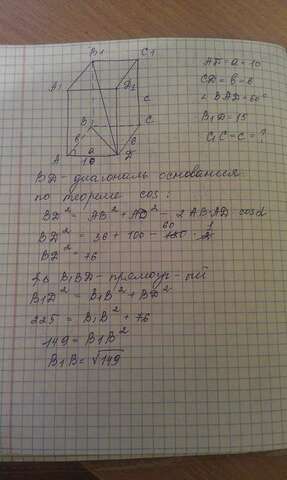 B1
C1
A1
D1
C
B
C
6
6
a
A
10
D
AD = a = 10
CD = b = 6
∠ BAD = 60°
B1D = 15
C1C = c = ?
BD - диагональ основания
по теореме cos:
BD² = AB² + AD² - 2 AB·AD cosα
BD² = 36 + 100 - 60
BD² = 76
B1BD - прямоуг-ый
B1D² = B1B² + BD²
225 = B1B² + 76
149 = B1B²
B1B = √149